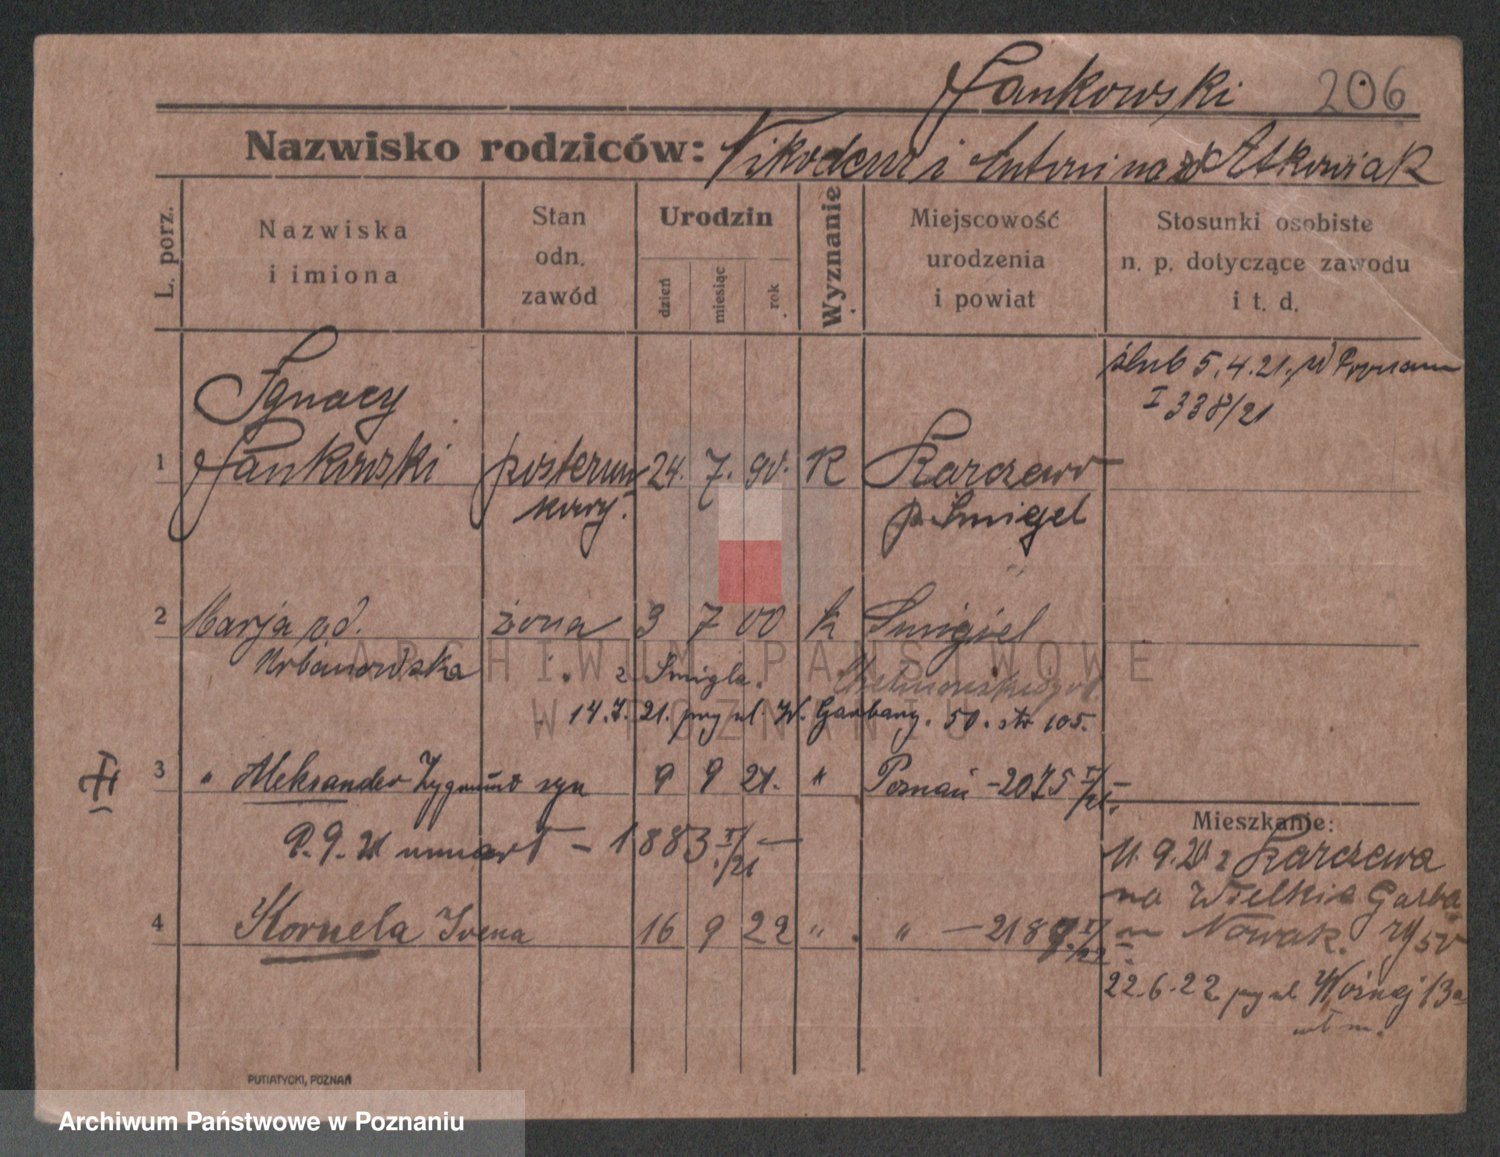 Jankowski 206
Nazwisko rodziców: Nikodem i Antonina zd Atkowiak
L. porz.
Nazwiska
i imiona
Stan
odn.
zawód
Urodzin
dzień
miesiąc
rok
Wyznanie
Miejscowość
urodzenia
i powiat
Stosunki osobiste
n. p. dotyczące zawodu
i t. d.
ślub 5.4.21. w Poznaniu
I 338/21
Ignacy
1 Jankowski posterun 24. 7. 90. K Karczewo
kowy. p. Śmigel
2 Marja zd. żona 3 7 00 K Śmigiel
Urbanowska z Śmigla.
14.7.21. przy ul. W. Garbary. 50. str 105.
3 " Aleksander Zygmunt syn 9 9 21. " Poznań - 2075 I/21.
9. 21 umarł - 1883 I/21 -
4 Kornela Irena 16 9 22 " " - 2189 I/22
Mieszkanie:
11.9.20 z Karczewa
na Wielkie Garba
m Nowak. ry 50
22.6.22 przy ul Woźnej 13a
m.
PUTIATYCKI, POZNAŃ
ARCHIWUM PAŃSTWOWE
W POZNANIU
Archiwum Państwowe w Poznaniu